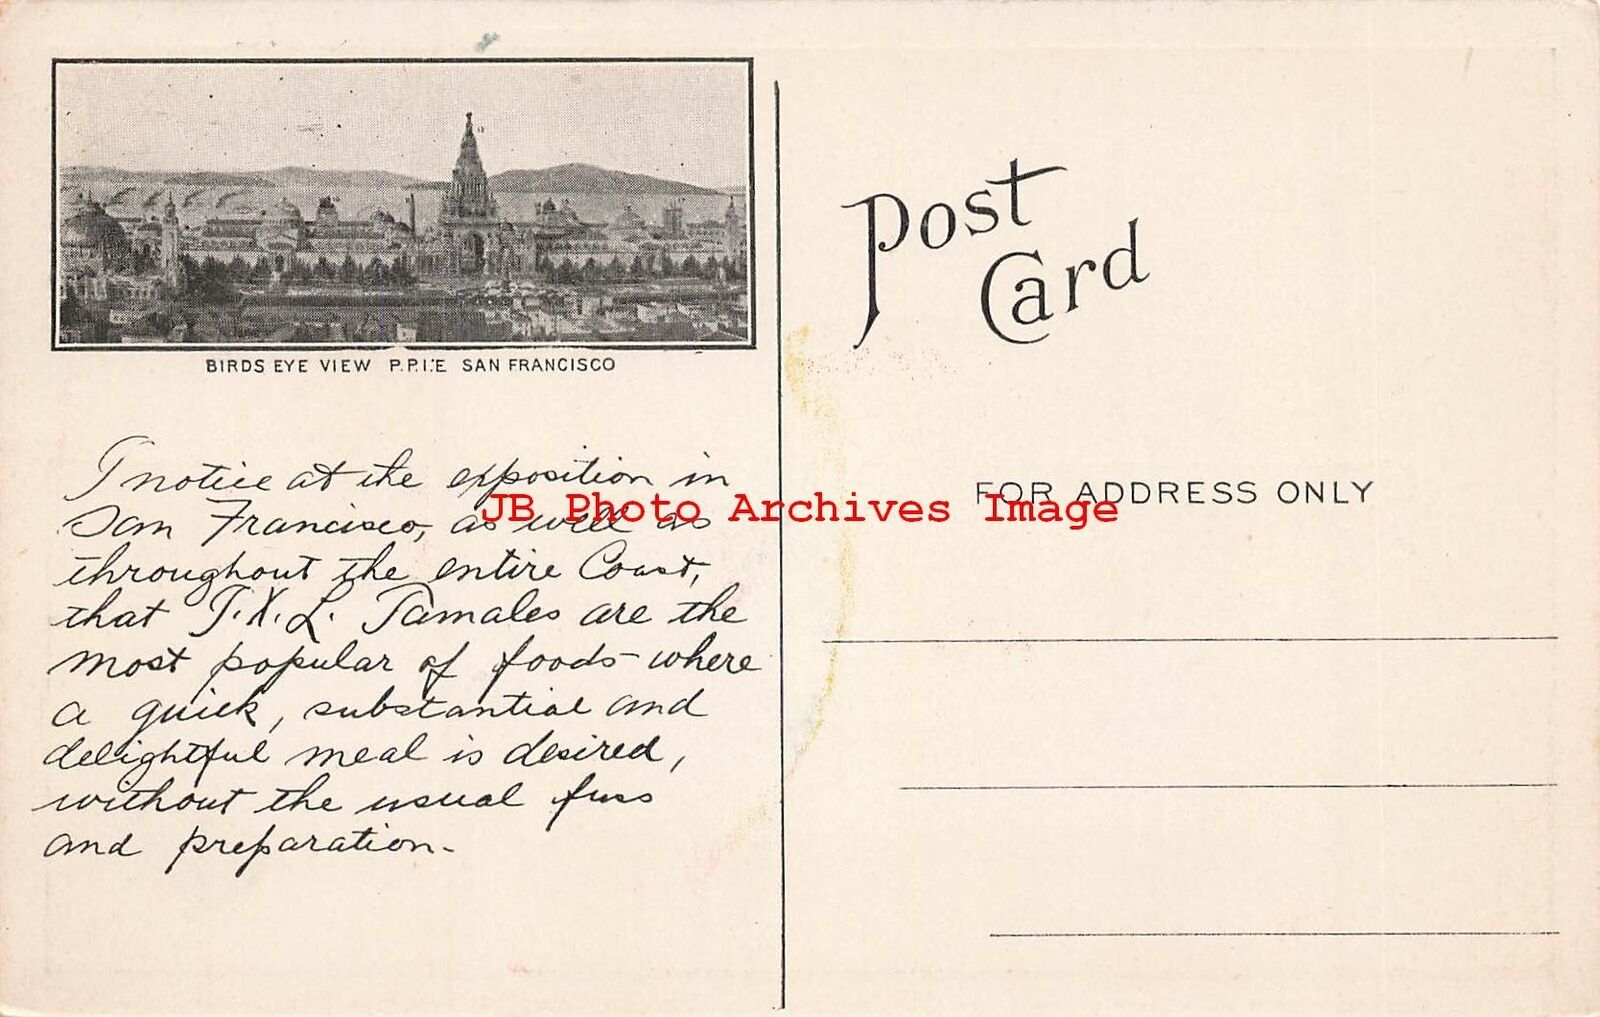 BIRDS EYE VIEW P.P.I.E SAN FRANCISCO
I notice at the exposition in
San Francisco, as well as
throughout the entire Coast,
that I.X.L. Tamales are the
most popular of foods - where
a quick, substantial and
delightful meal is desired,
without the usual fuss
and preparation -
Post
Card
FOR ADDRESS ONLY
JB Photo Archives Image